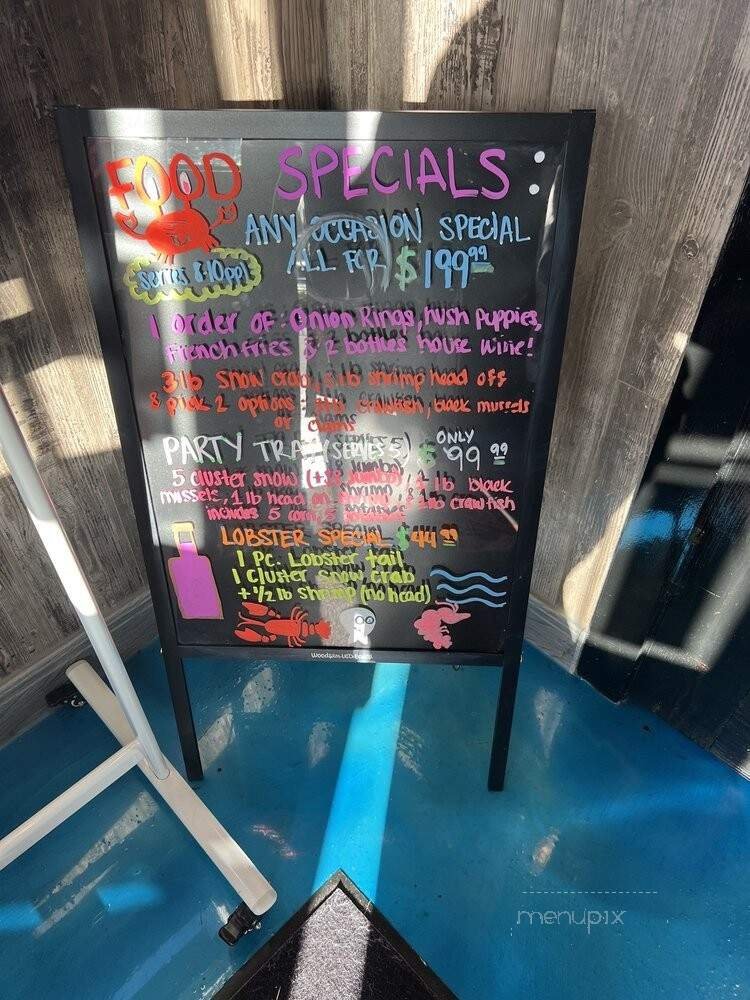 FOOD SPECIALS :
ANY OCCASION SPECIAL
ALL FOR $199.99
serves 8-10ppl
1 order of: Onion Rings, hush Puppies,
French fries & 2 bottles house wine!
3 lb snow crab, lb shrimp head off
& pick 2 options: crawfish, black mussels
or clams
PARTY TRAY (SERVES 5) ONLY $99.99
5 cluster snow ( Jumbo), lb black
mussels, 1 lb head on lb crawfish
includes 5 corn, 5
LOBSTER SPECIAL $44.99
1 PC. Lobster tail
1 cluster snow crab
+ 1/2 lb shrimp (no head)
menupix